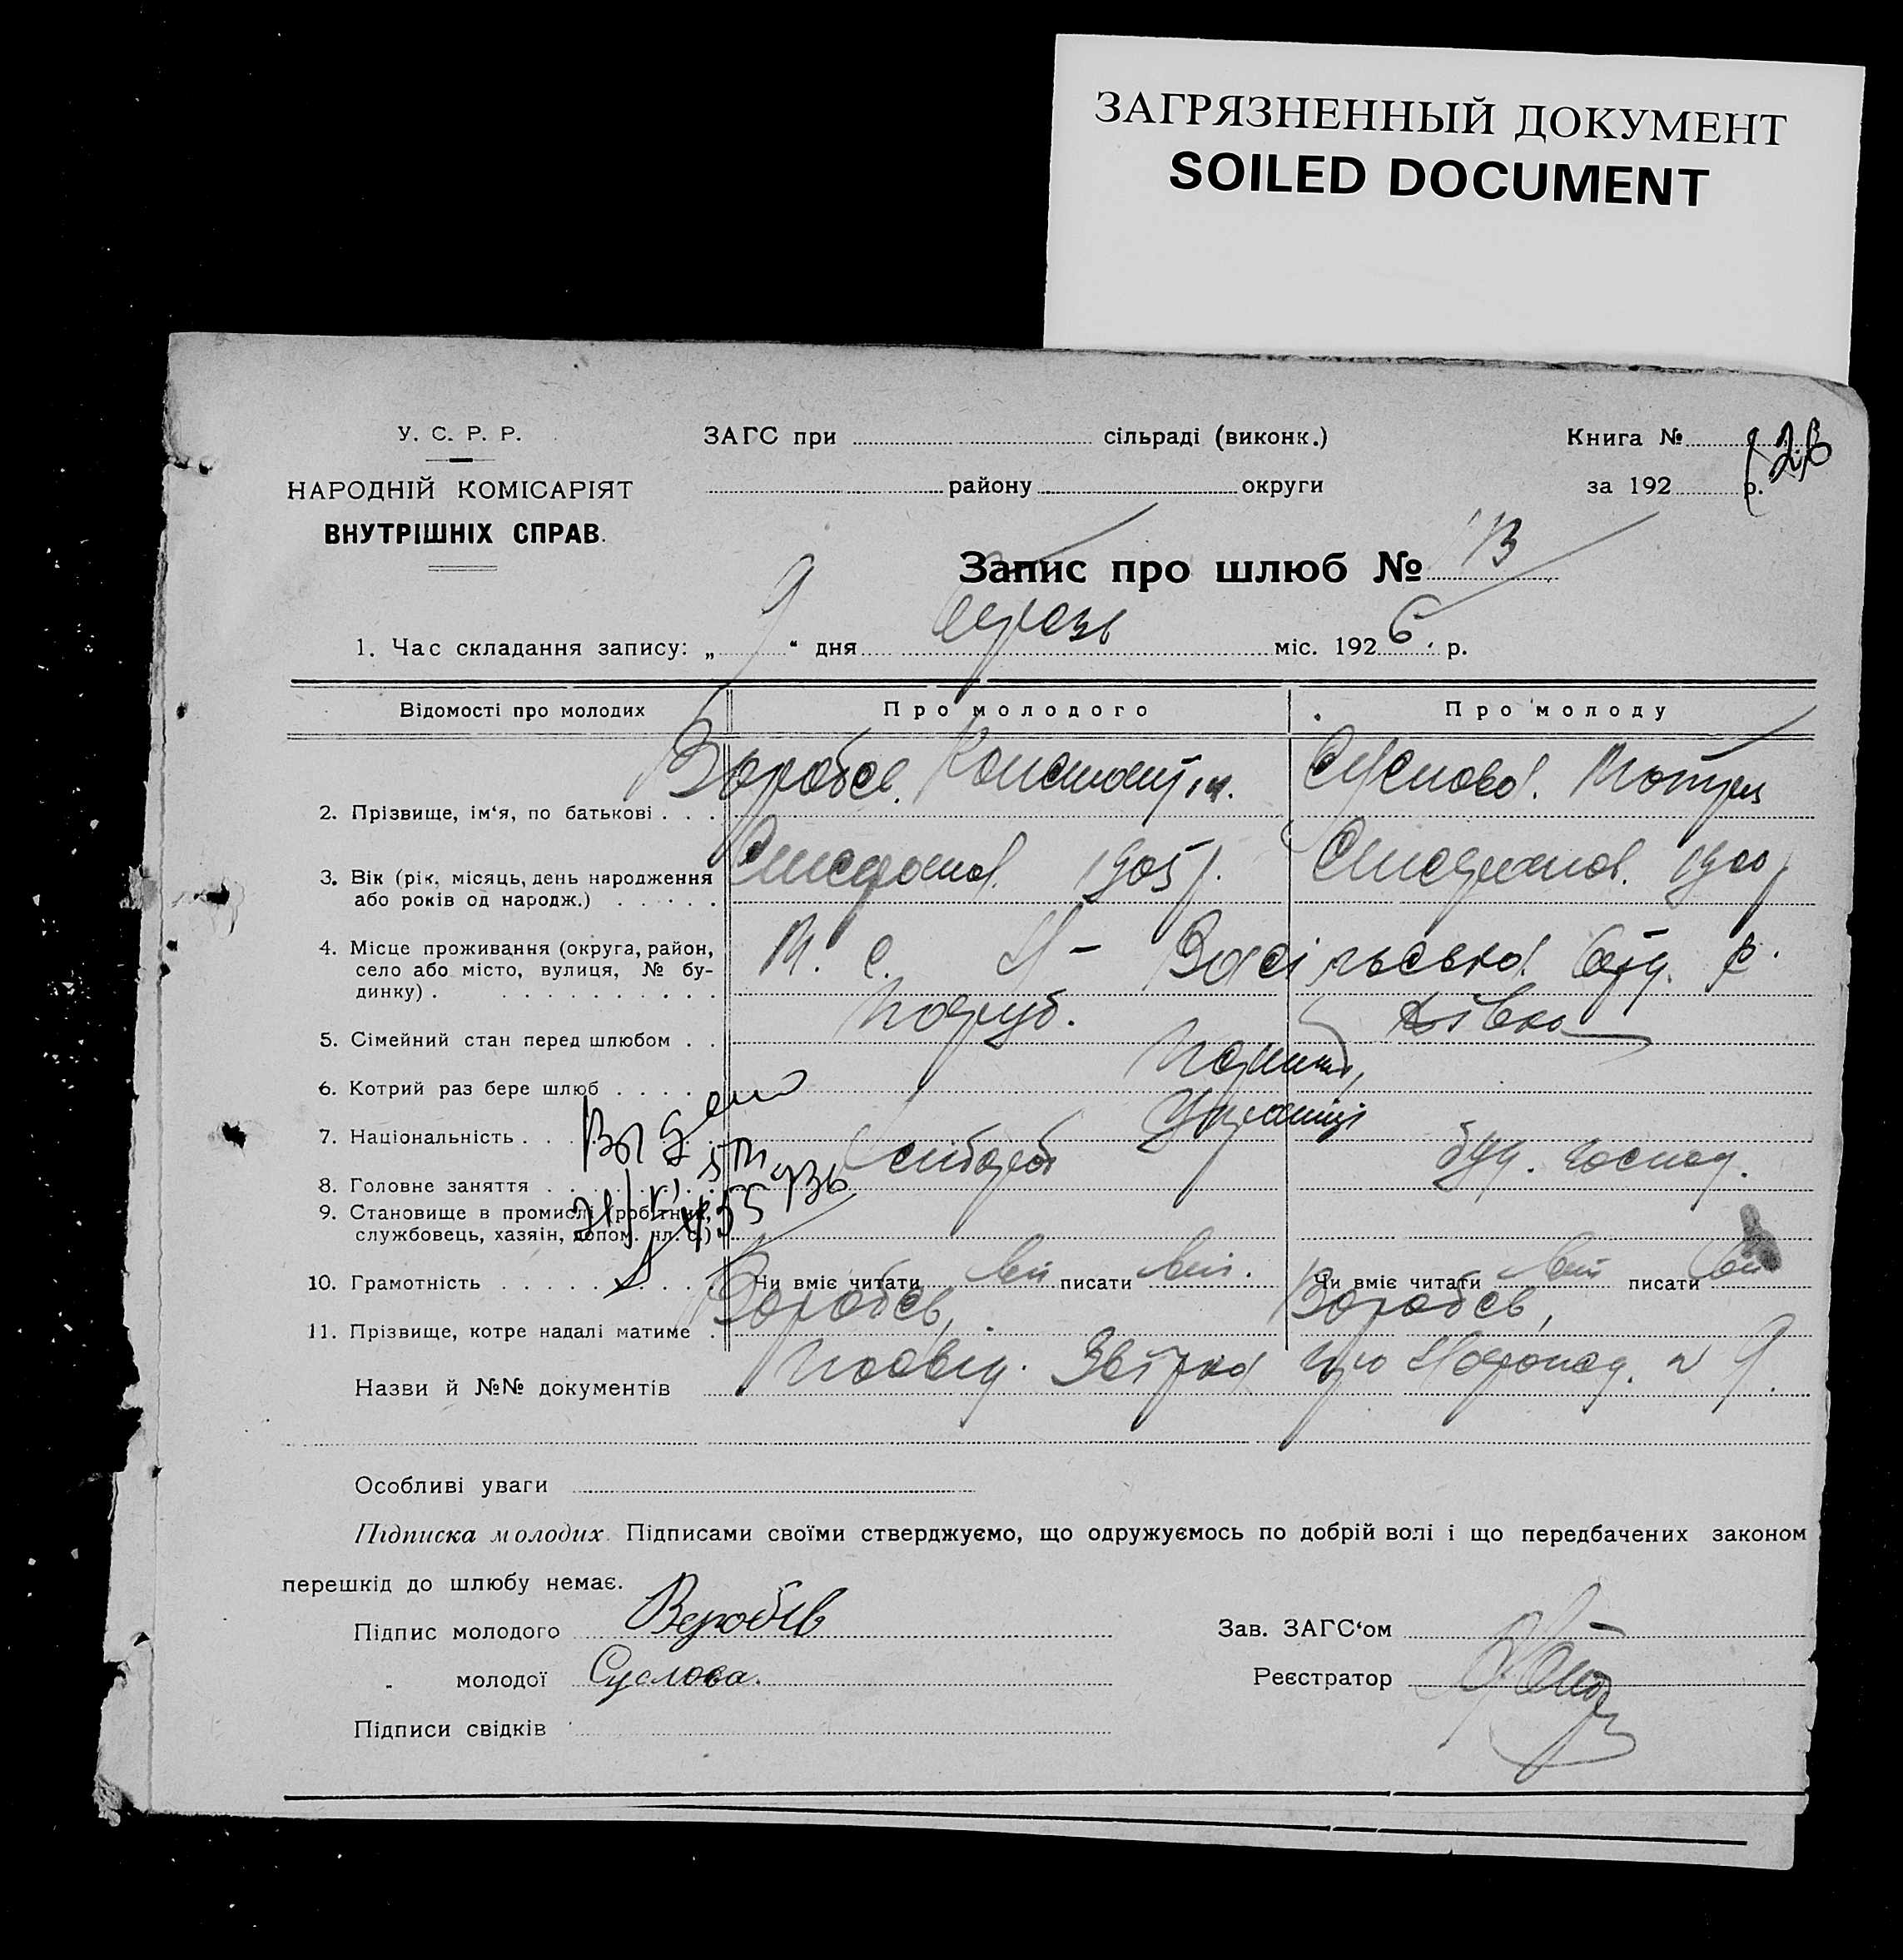 ЗАГРЯЗНЕННЫЙ ДОКУМЕНТ
SOILED DOCUMENT
У. С. Р. Р.
НАРОДНІЙ КОМІСАРІЯТ
ВНУТРІШНІХ СПРАВ.
ЗАГС при сільраді (виконк.)
району округи
Книга №
за 192 р.
Запис про шлюб № 13
1. Час складання запису: „ 9 “ дня міс. 192 6 р.
Відомості про молодих Про молодого Про молоду
2. Прізвище, ім‘я, по батькові . . . Воробєв. Константін. Суслова. Мотря
3. Вік (рік, місяць, день народження
або років од народж.) . . . . . Стефанов. 1905 р. Стефанов. 1900 р
4. Місце проживання (округа, район,
село або місто, вулиця, № бу-
динку) . . . . . . . . . . . М. с. Н- Васільська
5. Сімейний стан перед шлюбом . . Паруб. Дівка
6. Котрий раз бере шлюб . . . . .
7. Національність . . . . . . . Українці
8. Головне заняття . . . . . . . Хлібороб
9. Становище в промислі (робітник,
службовець, хазяїн, допом. чл. с.)
10. Грамотність . . . . . . . . Чи вміє читати писати Чи вміє читати писати
11. Прізвище, котре надалі матиме . Воробєв, Воробєв,
Назви й №№ документів Посвід. про № 9.
Особливі уваги
Підписка молодих. Підписами своїми стверджуємо, що одружуємось по добрій волі і що передбачених законом
перешкід до шлюбу немає.
Підпис молодого Воробїв
„ молодої Суслова.
Підписи свідків
Зав. ЗАГС‘ом
Реєстратор